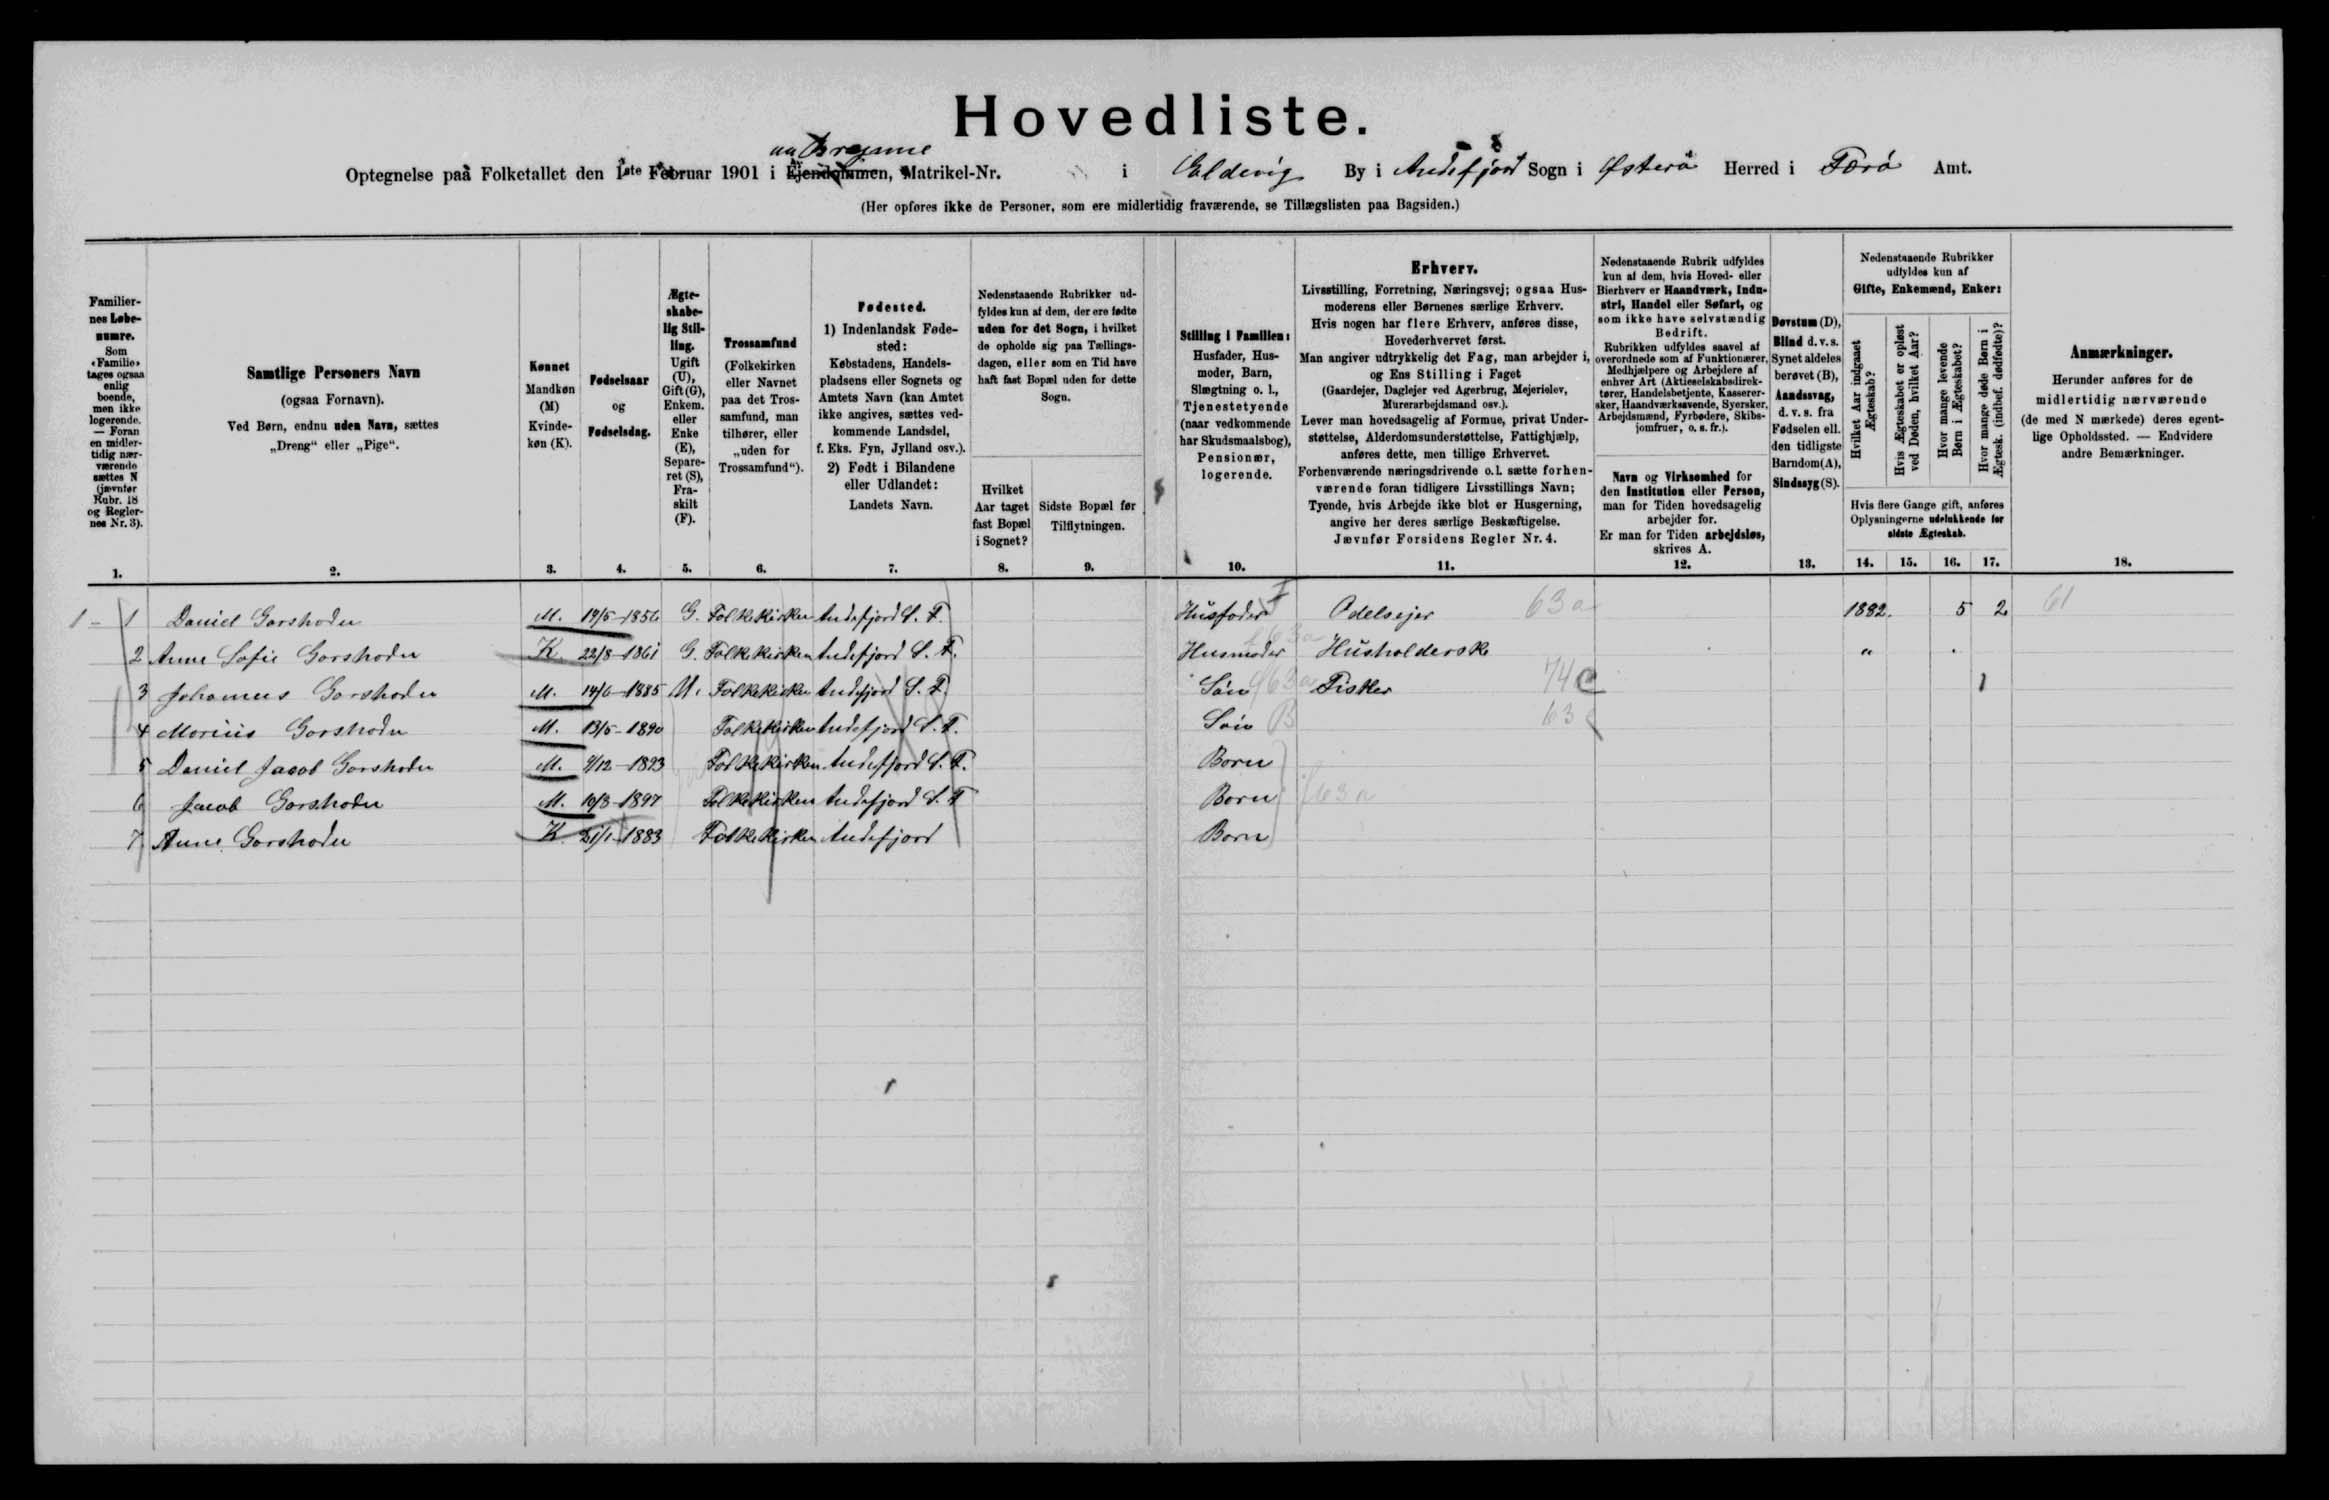 Hovedliste.
Optegnelse paa Folketallet den 1ste Februar 1901 i Ejendommen, Matrikel-Nr. i Eldevig By i Andefjord Sogn i Østerø Herred i Færø Amt.
(Her opføres ikke de Personer, som ere midlertidig fraværende, se Tillægslisten paa Bagsiden.)
Familiernes Løbenumre. Som «Familie» tages ogsaa enlig boende, men ikke logerende. — Foran en midlertidig nærværende sættes N (jævnfør Rubr. 18 og Reglernes Nr. 3).
Samtlige Personers Navn
(ogsaa Fornavn).
Ved Børn, endnu uden Navn, sættes
„Dreng“ eller „Pige“.
Kønnet
Mandkøn (M)
Kvindekøn (K).
Fødselsaar
og
Fødselsdag.
Ægteskabelig Stilling.
Ugift (U), Gift (G), Enkem. eller Enke (E), Separeret (S), Fraskilt (F).
Trossamfund
(Folkekirken eller Navnet paa det Trossamfund, man tilhører, eller „uden for Trossamfund“).
Fødested.
1) Indenlandsk Fødested:
Købstadens, Handelspladsens eller Sognets og Amtets Navn (kan Amtet ikke angives, sættes vedkommende Landsdel, f. Eks. Fyn, Jylland osv.).
2) Født i Bilandene eller Udlandet:
Landets Navn.
Nedenstaaende Rubrikker udfyldes kun af dem, der ere fødte uden for det Sogn, i hvilket de opholde sig paa Tællingsdagen, eller som en Tid have haft fast Bopæl uden for dette Sogn.
Hvilket Aar taget fast Bopæl i Sognet?
Sidste Bopæl før Tilflytningen.
Stilling i Familien:
Husfader, Husmoder, Barn, Slægtning o. l., Tjenestetyende (naar vedkommende har Skudsmaalsbog), Pensionær, logerende.
Erhverv.
Livsstilling, Forretning, Næringsvej; ogsaa Husmoderens eller Børnenes særlige Erhverv.
Hvis nogen har flere Erhverv, anføres disse, Hovederhvervet først.
Man angiver udtrykkelig det Fag, man arbejder i, og Ens Stilling i Faget
(Gaardejer, Daglejer ved Agerbrug, Mejerielev, Murerarbejdsmand osv.).
Lever man hovedsagelig af Formue, privat Understøttelse, Alderdomsunderstøttelse, Fattighjælp, anføres dette, men tillige Erhvervet.
Forhenværende næringsdrivende o. l. sætte forhenværende foran tidligere Livsstillings Navn;
Tyende, hvis Arbejde ikke blot er Husgerning, angive her deres særlige Beskæftigelse.
Jævnfør Forsidens Regler Nr. 4.
Nedenstaaende Rubrik udfyldes kun af dem, hvis Hoved- eller Bierhverv er Haandværk, Industri, Handel eller Søfart, og som ikke have selvstændig Bedrift.
Rubrikken udfyldes saavel af overordnede som af Funktionærer, Medhjælpere og Arbejdere af enhver Art (Aktieselskabsdirektører, Handelsbetjente, Kasserersker, Haandværkssvende, Syersker, Arbejdsmænd, Fyrbødere, Skibsjomfruer, o. s. fr.).
Navn og Virksomhed for den Institution eller Person, man for Tiden hovedsagelig arbejder for.
Er man for Tiden arbejdsløs, skrives A.
Døvstum (D), Blind d. v. s. Synet aldeles berøvet (B), Aandssvag, d. v. s. fra Fødselen ell. den tidligste Barndom (A), Sindssyg (S).
Nedenstaaende Rubrikker udfyldes kun af
Gifte, Enkemænd, Enker:
Hvilket Aar indgaaet Ægteskab?
Hvis Ægteskabet er opløst ved Døden, hvilket Aar?
Hvor mange levende Børn i Ægteskabet?
Hvor mange døde Børn i Ægtesk. (indbef. dødfødte)?
Hvis flere Gange gift, anføres Oplysningerne udelukkende for sidste Ægteskab.
Anmærkninger.
Herunder anføres for de midlertidig nærværende (de med N mærkede) deres egentlige Opholdssted. — Endvidere andre Bemærkninger.
1. 2. 3. 4. 5. 6. 7. 8. 9. 10. 11. 12. 13. 14. 15. 16. 17. 18.
1 - 1 Daniel Garshoder M. 19/5-1856 G. Folkekirken Andefjord S. F. Husfader Odelsejer 63 a 1882. 5 2 61
2 Anne Sofie Garshoder K. 22/8-1861 G. Folkekirken Andefjord S. F. Husmoder Husholderske "
3 Johannes Garshoder M. 14/6-1885 U. Folkekirken Andefjord S. F. Søn Fisker 74 C 1
4 Morius Garshoder M. 13/5-1890 Folkekirken Andefjord S. F. Søn 63
5 Daniel Jacob Garshoder M. 9/12-1893 Folkekirken Andefjord S. F. Born
6 Jacob Garshoder M. 10/3-1897 Folkekirken Andefjord S. F Born 63 a
7 Anne Garshoder K. 21/1-1883 Folkekirken Andefjord Born